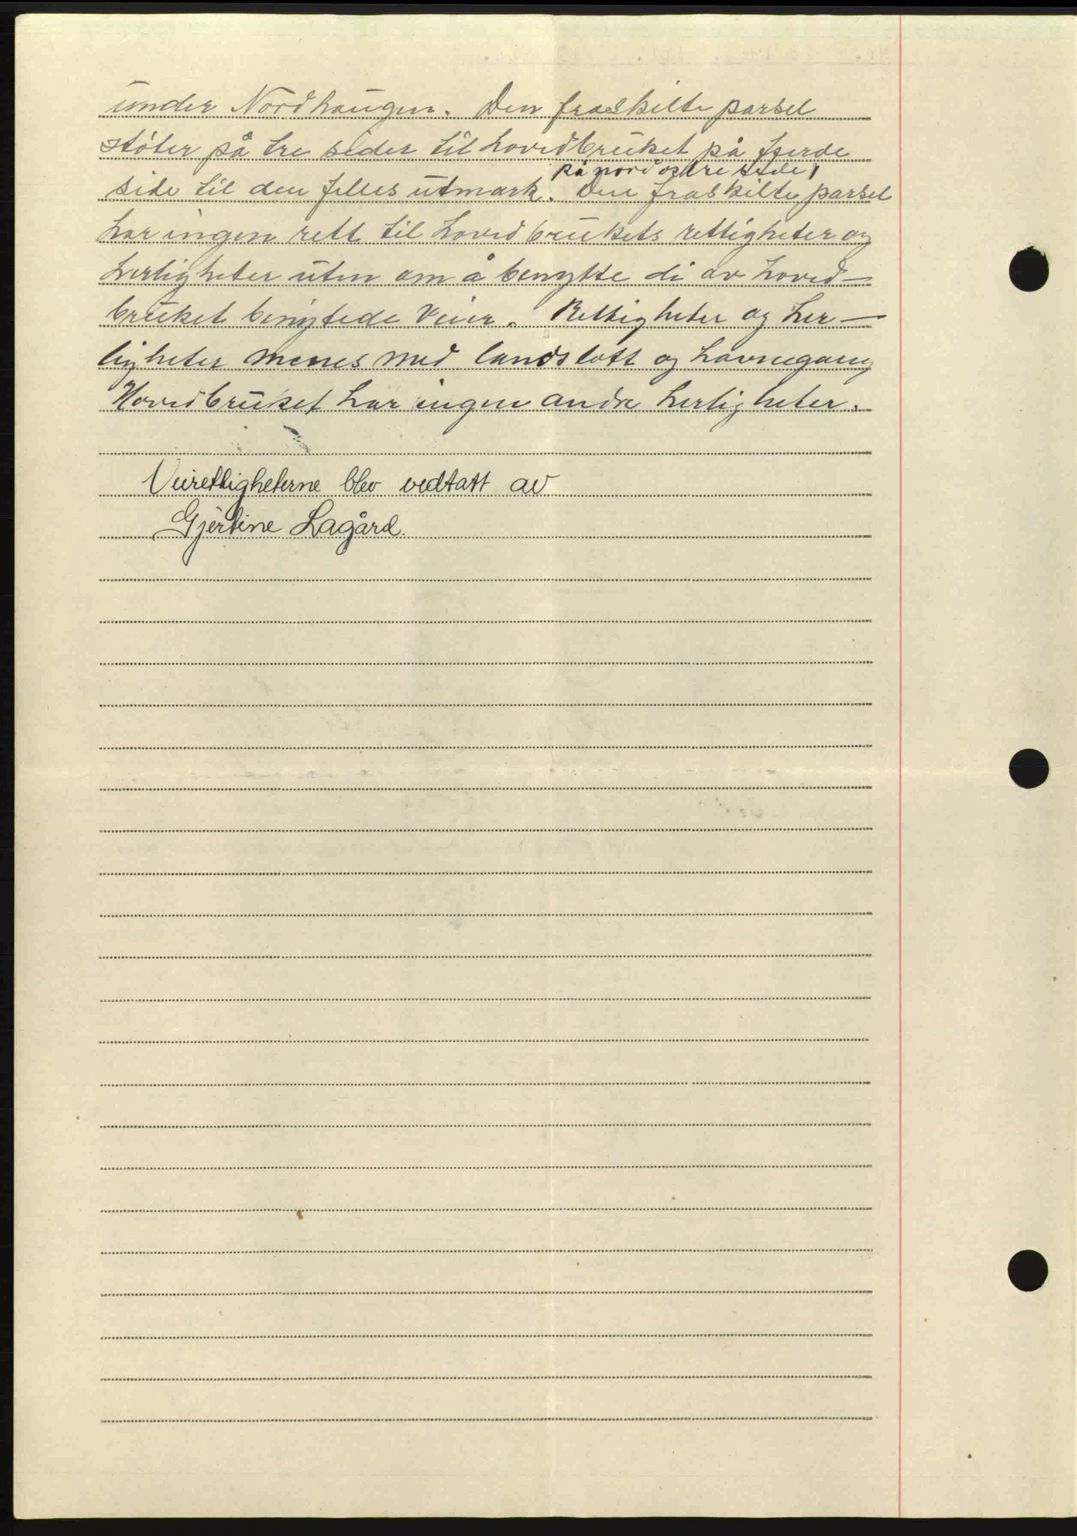 under Nordhaugen. Den fraskilte parsel
støter på tre sider til hovedbruket på fjerde
på nordøstre side,
side til den felles utmark. Den fraskilte parsel
har ingen rett til hovedbrukets rettigheter og
herligheter uten om å benytte di av hoved-
bruket benytede veier. Rettigheter og her-
ligheter menes med landslott og havnegang
Hovedbruket har ingen andre herligheter.
Veirettigheterne blev vedtatt av
Gjertine Lagård.